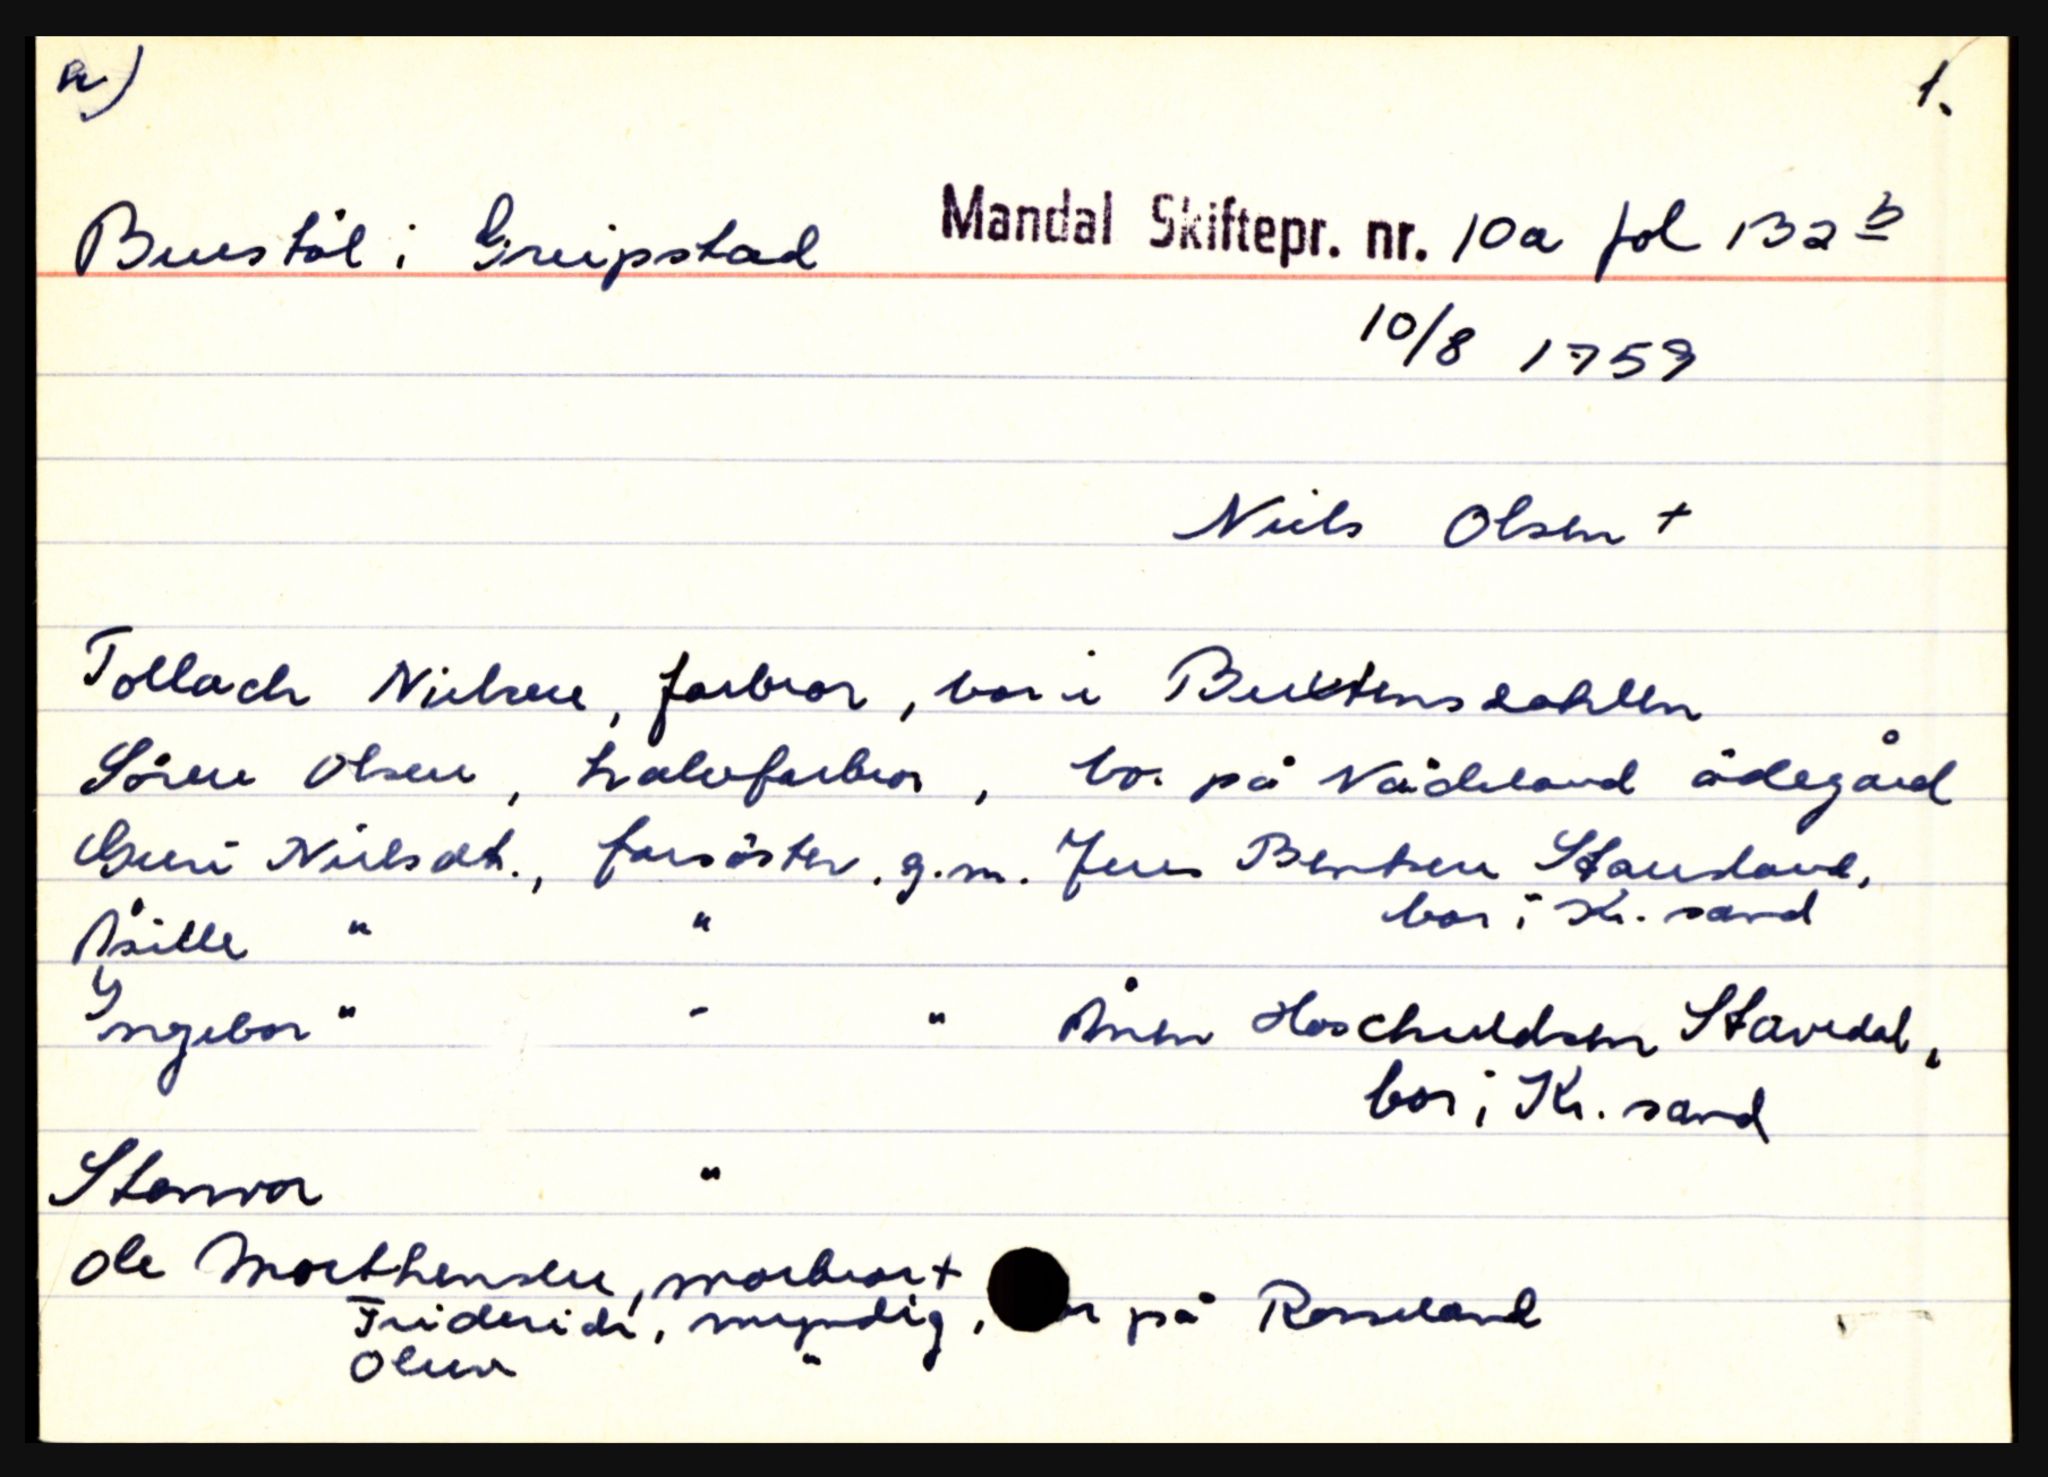 a) 1.
Bustöl i Greipstad Mandal Skiftepr. nr. 10a fol 132 b
10/8 1759
Niels Olsen +
Tollach Nielsen, farbror, bor i
Sören Olsen, halvfarbror, bor på ödegård
Guri Nielsdt., farsöster. g.m. Jens Bentsen Stausland,
bor i Kr. sand
Åsille " "
Yngebor " " " Ånen Hoschuldsen Stavedal,
bor i Kr. sand
Stenvor "
Ole Morthensen, morbror +
Friderich, myndig, på Rosseland
Oluv "